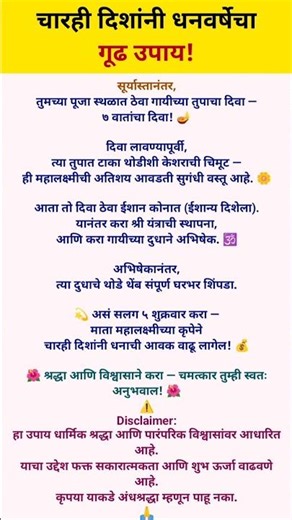 चारही दिशांनी धनवर्षेचा
गूढ उपाय!
सूर्यास्तानंतर,
तुमच्या पूजा स्थळात ठेवा गायीच्या तुपाचा दिवा –
७ वातांचा दिवा! 🪔
दिवा लावण्यापूर्वी,
त्या तुपात टाका थोडीशी केशराची चिमूट –
ही महालक्ष्मीची अतिशय आवडती सुगंधी वस्तू आहे. 🌼
आता तो दिवा ठेवा ईशान कोनात (ईशान्य दिशेला).
यानंतर करा श्री यंत्राची स्थापना,
आणि करा गायीच्या दुधाने अभिषेक. 🕉
अभिषेकानंतर,
त्या दुधाचे थोडे थेंब संपूर्ण घरभर शिंपडा.
💫 असं सलग ५ शुक्रवार करा –
माता महालक्ष्मीच्या कृपेने
चारही दिशांनी धनाची आवक वाढू लागेल! 💰
🌺 श्रद्धा आणि विश्वासाने करा – चमत्कार तुम्ही स्वतः
अनुभवाल! 🌺
⚠️
Disclaimer:
हा उपाय धार्मिक श्रद्धा आणि पारंपरिक विश्वासांवर आधारित
आहे.
याचा उद्देश फक्त सकारात्मकता आणि शुभ ऊर्जा वाढवणे
आहे.
कृपया याकडे अंधश्रद्धा म्हणून पाहू नका.
🙏